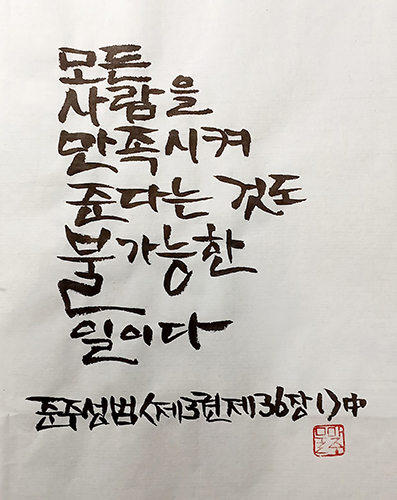 모든
사람을
만족시켜
준다는 것도
불가능한
일이다
준주성범<제3편제36장1>中